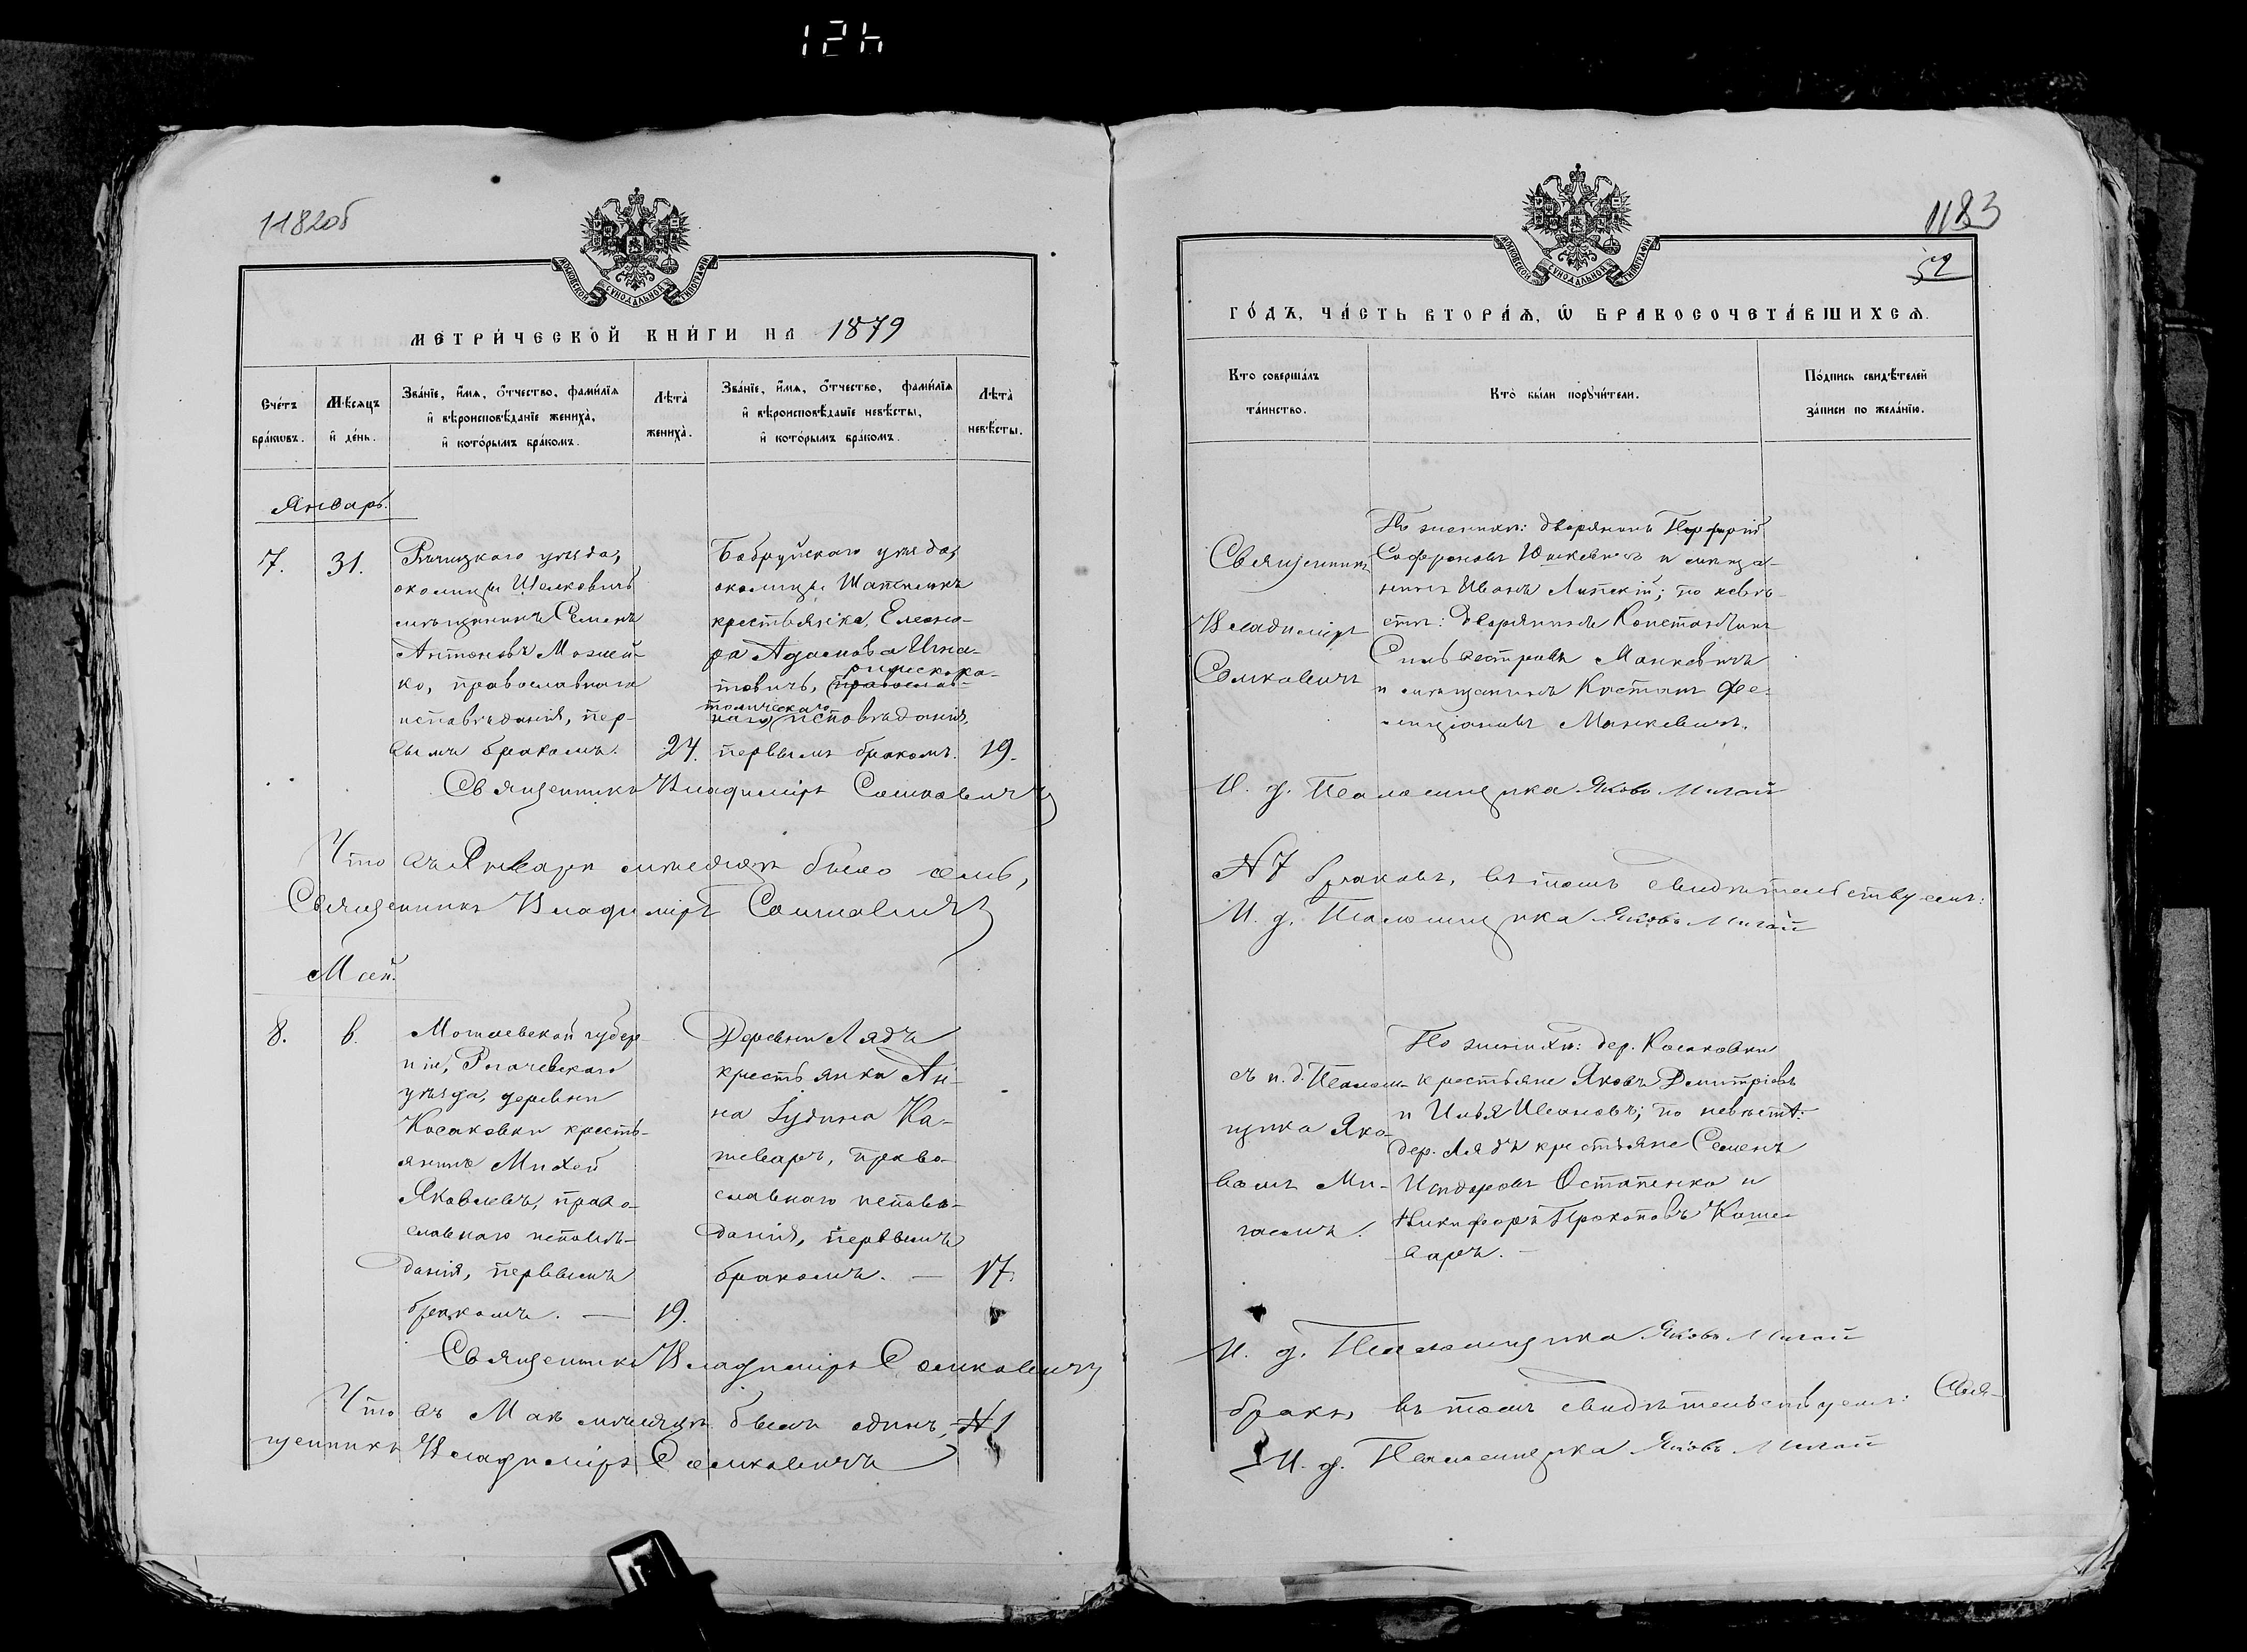 12h
1182об
МОСКОВСКОЙ СУНОДАЛЬНОЙ ТИПОГРАФІИ
МЕТРИ́ЧЕСКОЙ КНИ́ГИ НА 1879
Сче́тъ бра́кѡвъ.
Мѣсяцъ и҆ де́нь.
Зва́нїе, и҆́мѧ, ѻ҆́тчество, фами́лїѧ и҆ вѣроисповѣ́данїе жениха̀, и҆ кото́рымъ бра́комъ.
Лѣ́та жениха̀.
Зва́нїе, и҆́мѧ, ѻ҆́тчество, фами́лїѧ и҆ вѣроисповѣ́данїе невѣ́сты, и҆ кото́рымъ бра́комъ.
Лѣ́та невѣ́сты.
Январь.
7.
31.
Рѣчицкаго уѣзда,
околицы
мѣщанинъ Семенъ
Антоновъ Мозлей-
ко, православнаго
исповѣданія, пер-
вымъ бракомъ.
24.
Бобруйскаго уѣзда,
околицы
крестьянка, Елено-
ра Адамова Игна-
товичъ, православ- римско-ка-
наго толическаго исповѣданія,
первымъ бракомъ.
19.
Священникъ Владиміръ Сомковичъ
Что въ Январѣ мѣсяцѣ было семь,
Священникъ Владиміръ Сомковичъ
Май.
8.
6.
Могилевской губер-
ніи, Рогачевскаго
уѣзда, деревни
Косаковки кресть-
янинъ Михей
Яковлевъ, право-
славнаго исповѣ-
данія, первымъ
бракомъ. —
19.
Деревни Лядъ
крестьянка Ан-
на Іудина Ка-
шеваръ, право-
славнаго исповѣ-
данія, первымъ
бракомъ. —
17.
Священникъ Владиміръ Сомковичъ
Что въ Маѣ мѣсяцѣ былъ одинъ, № 1
щенникъ Владиміръ Сомковичъ
1183
52
МОСКОВСКОЙ СУНОДАЛЬНОЙ ТИПОГРАФІИ
ГО́ДЪ, ЧА́СТЬ ВТОРА́Ѧ, Ѿ БРАКОСОЧЕТА́ВШИХСѦ.
Кто̀ соверша́лъ та́инство.
Кто̀ бы́ли порꙋчи́тели.
По́дпись свидѣ́телей за́писи по жела́нїю.
Священникъ
Владиміръ
Сомковичъ
По женихѣ: дворянинъ Порфирій
Софроновъ Юшкевичъ и мѣща-
нинъ Иванъ Липскій; по невѣ-
стѣ: дворянинъ Константинъ
Сильвестровъ Манкевичъ
и мѣщанинъ Костанъ Фе-
лиціановъ Манкевичъ.
И. д. Псаломщика Яковъ Мигай
№ 7 браковъ, въ томъ свидѣтельствуемъ:
И. д. Псаломщика Яковъ Мигай
съ и. д. Псалом-
щика Яко-
вомъ Ми-
гаемъ.
По женихѣ: дер. Косаковки
крестьяне Яковъ Дмитріевъ
и Илья Ивановъ; по невѣстѣ:
дер. Лядъ крестьяне Семенъ
Исидоровъ Остапенко и
Никифоръ Прокоповъ Каше-
варъ. —
И. д. Псаломщика Яковъ Мигай
бракъ, въ томъ свидѣтельствуемъ: Свя-
И. д. Псаломщика Яковъ Мигай